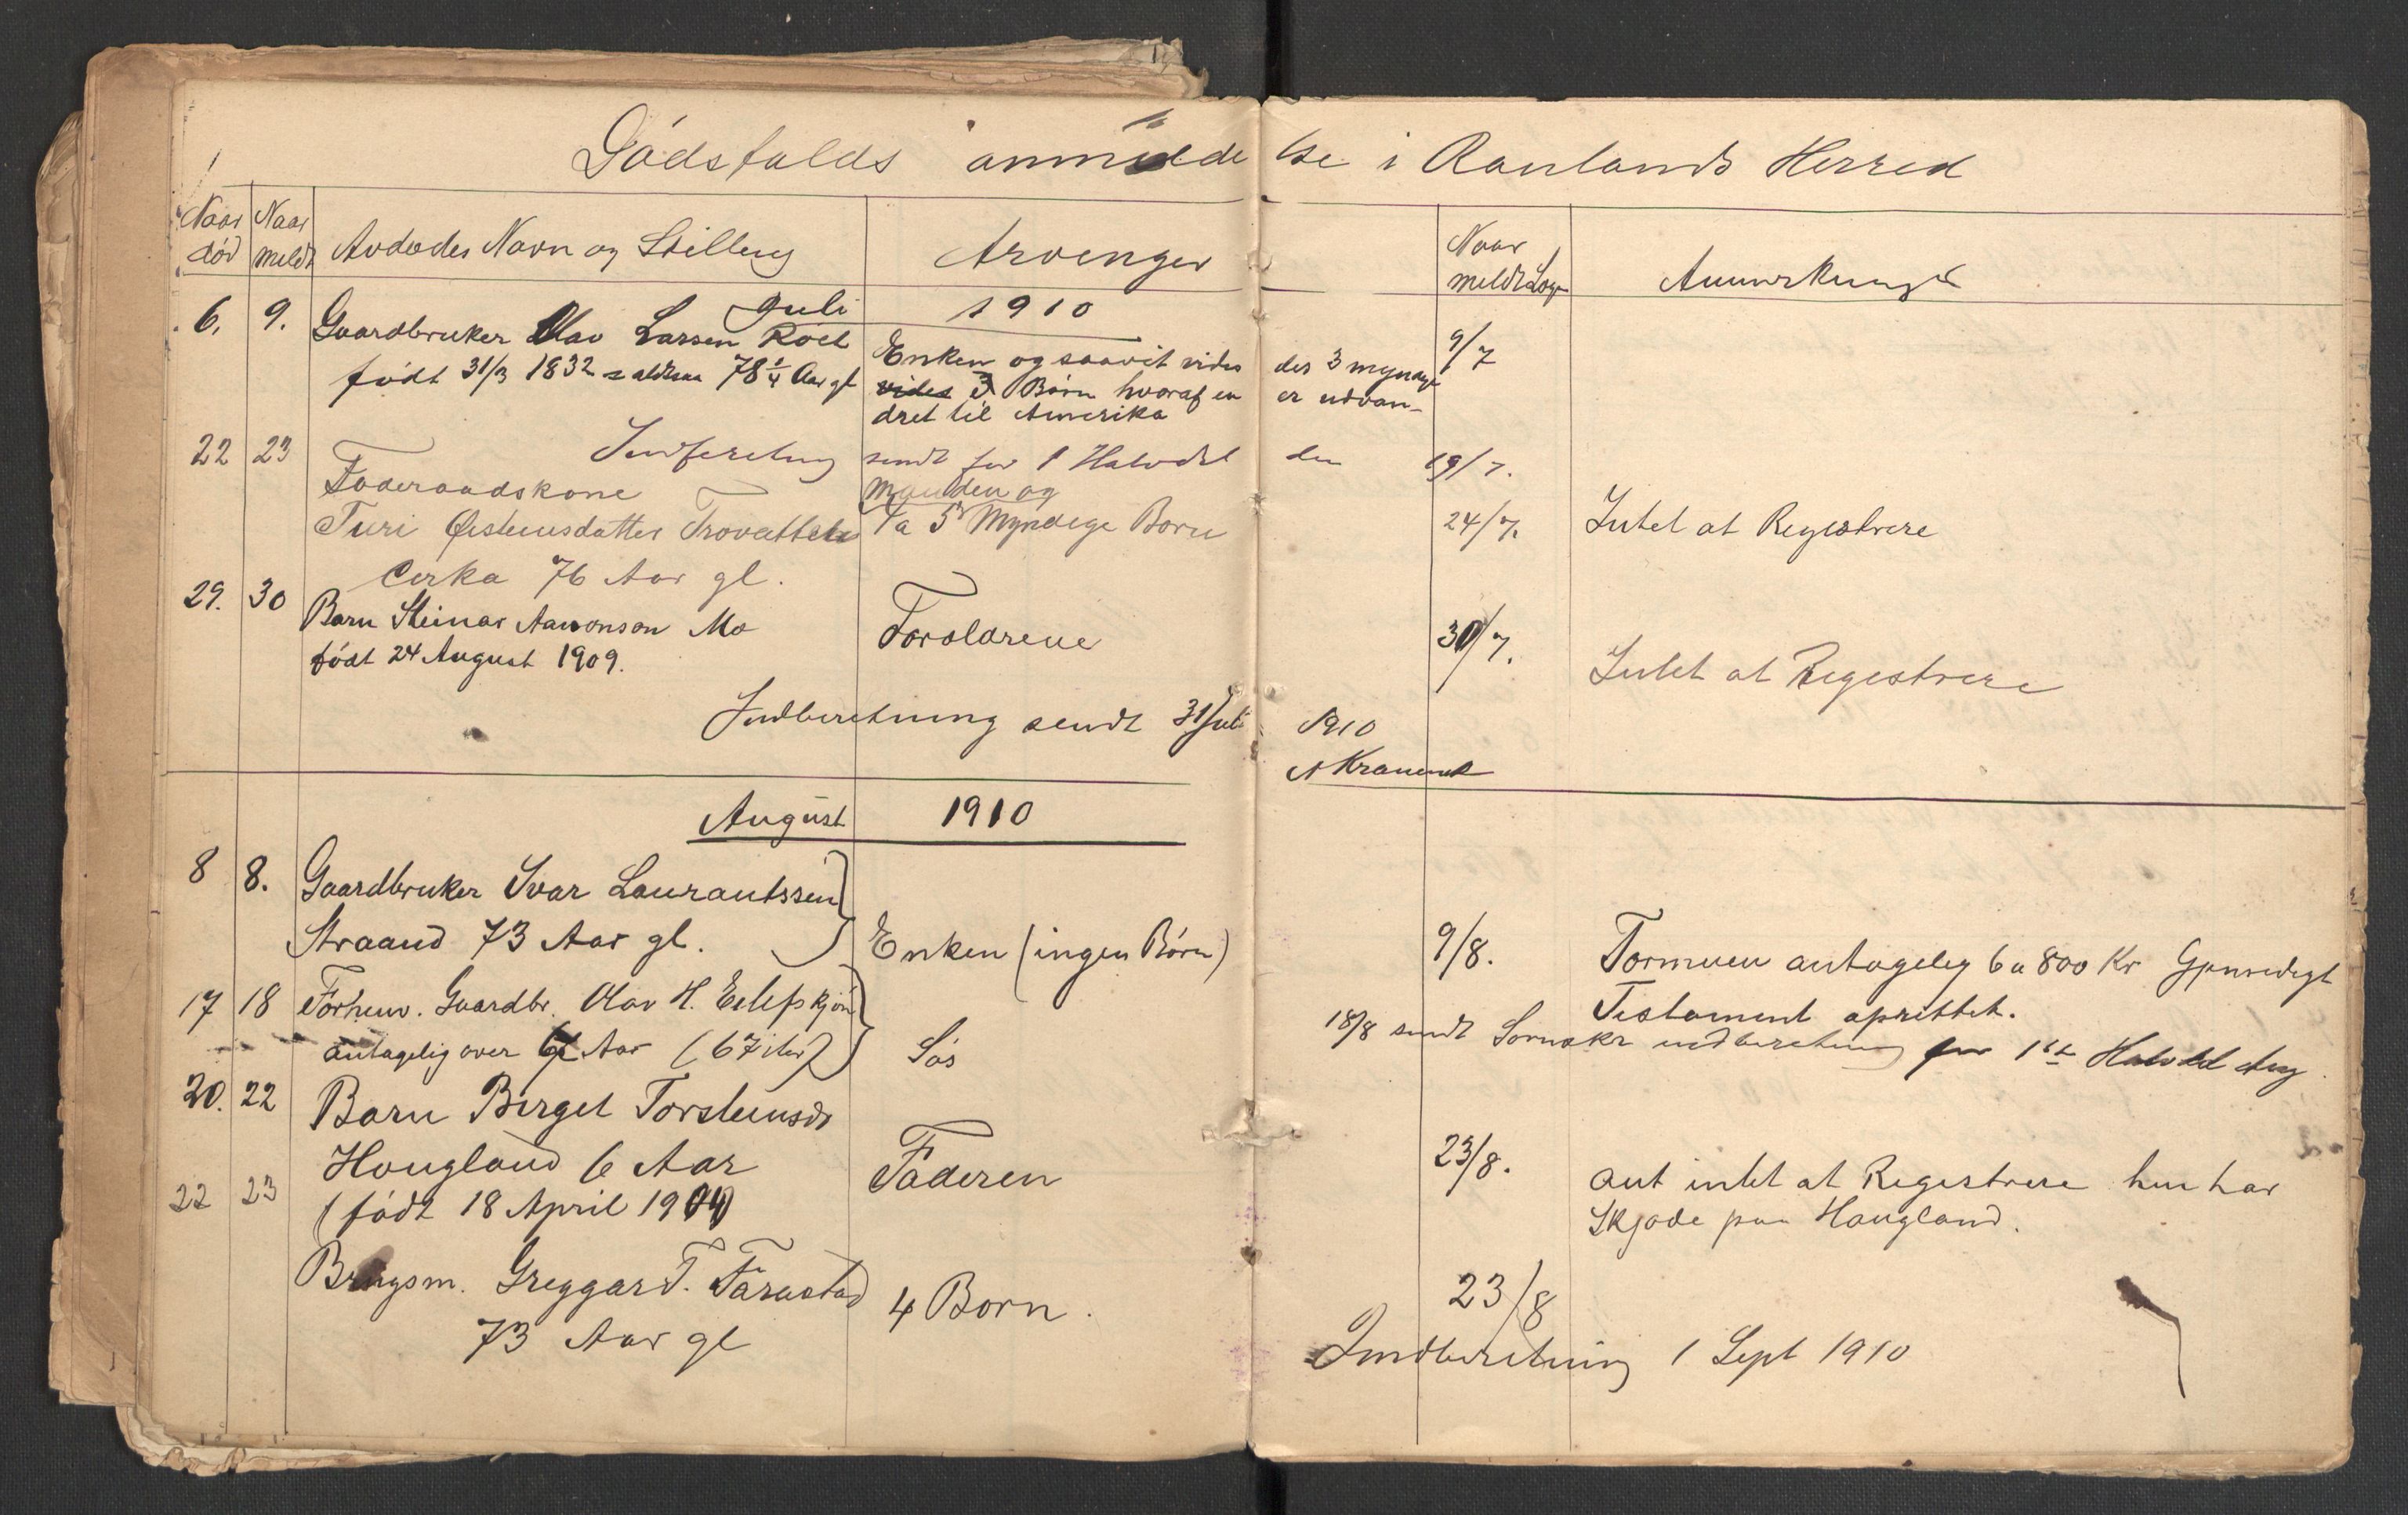 Dødsfalds anmeldelse i Raulands Herred
Naar død
Naar meldt
Avdødes Navn og Stilling
Arvenger
Naar meldt
Anmerkning
Juli 1910
6. 9. Gaardbruker Olav Larsen
født 31/3 1832 altsaa 78 1/4 Aar gl
Enken og saavit vides der 3 myndige
vides 3 Børn hvoraf en er udvan-
dret til Amerika
9/7
sendt for 1 Halvdel den 19/7.
22 23 Føderaadskone
Turi Øisteinsdatter
Cirka 76 Aar gl.
Manden og
4 a 5 Myndige Børn
24/7. Intet at Registrere
29. 30 Barn Steinar Aanonson Mo
født 24 August 1909.
Forældrene
30/7. Intet at Registrere
Indberetning sendt 31 Juli 1910
August 1910
8 8. Gaardbruker Ivar Laurantssen
Straand 73 Aar gl.
Enken (ingen Børn)
9/8. Formuen antagelig 6 a 800 Kr Gjensidigt
Testament oprettet.
17 18 Forhenv. Gaardbr. Olav H.
antagelig over 67 Aar (67 iler)
Søs
18/8 sendt Sornskr indberetning for 1ste Halvdel Aug.
20. 22 Barn Birget Torsteinsdr
Hougland 6 Aar
(født 18 April 1904)
Faderen
23/8. ant intet at Registrere hun har
Skjøde paa Hougland.
22 23 Brugsm. Greggar T.
73 Aar gl
4 Børn.
23/8
Indberetning 1 Sept 1910